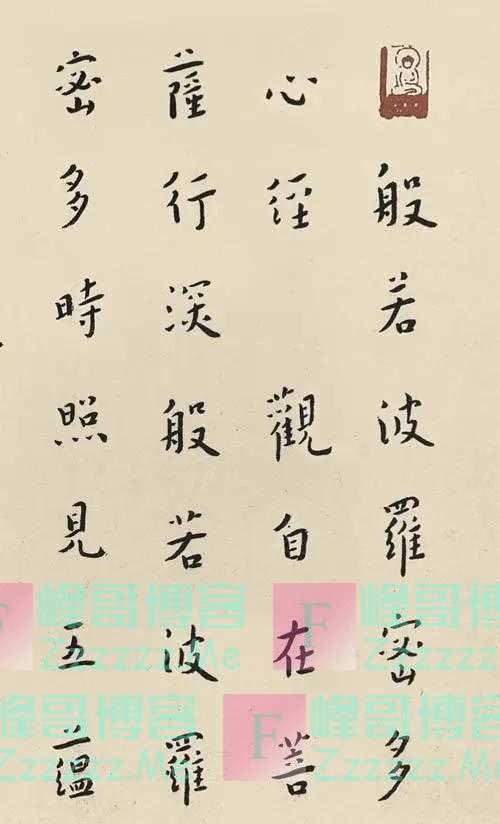 般若波羅密多
心經 觀自在菩
薩行深般若波羅
密多時照見五蘊
峰哥博客
Zzzzzz.Me
峰哥博客
Zzzzzz.Me
峰哥博客
Zzzzzz.Me
峰哥博客
Zzzzzz.Me